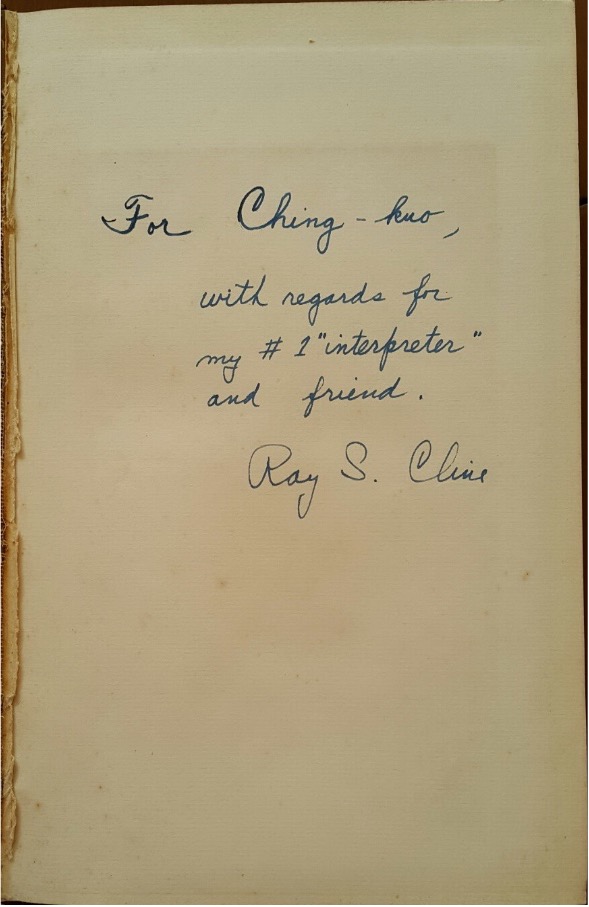 For Ching-kuo,
with regards for
my # 1 "interpreter"
and friend.
Ray S. Cline